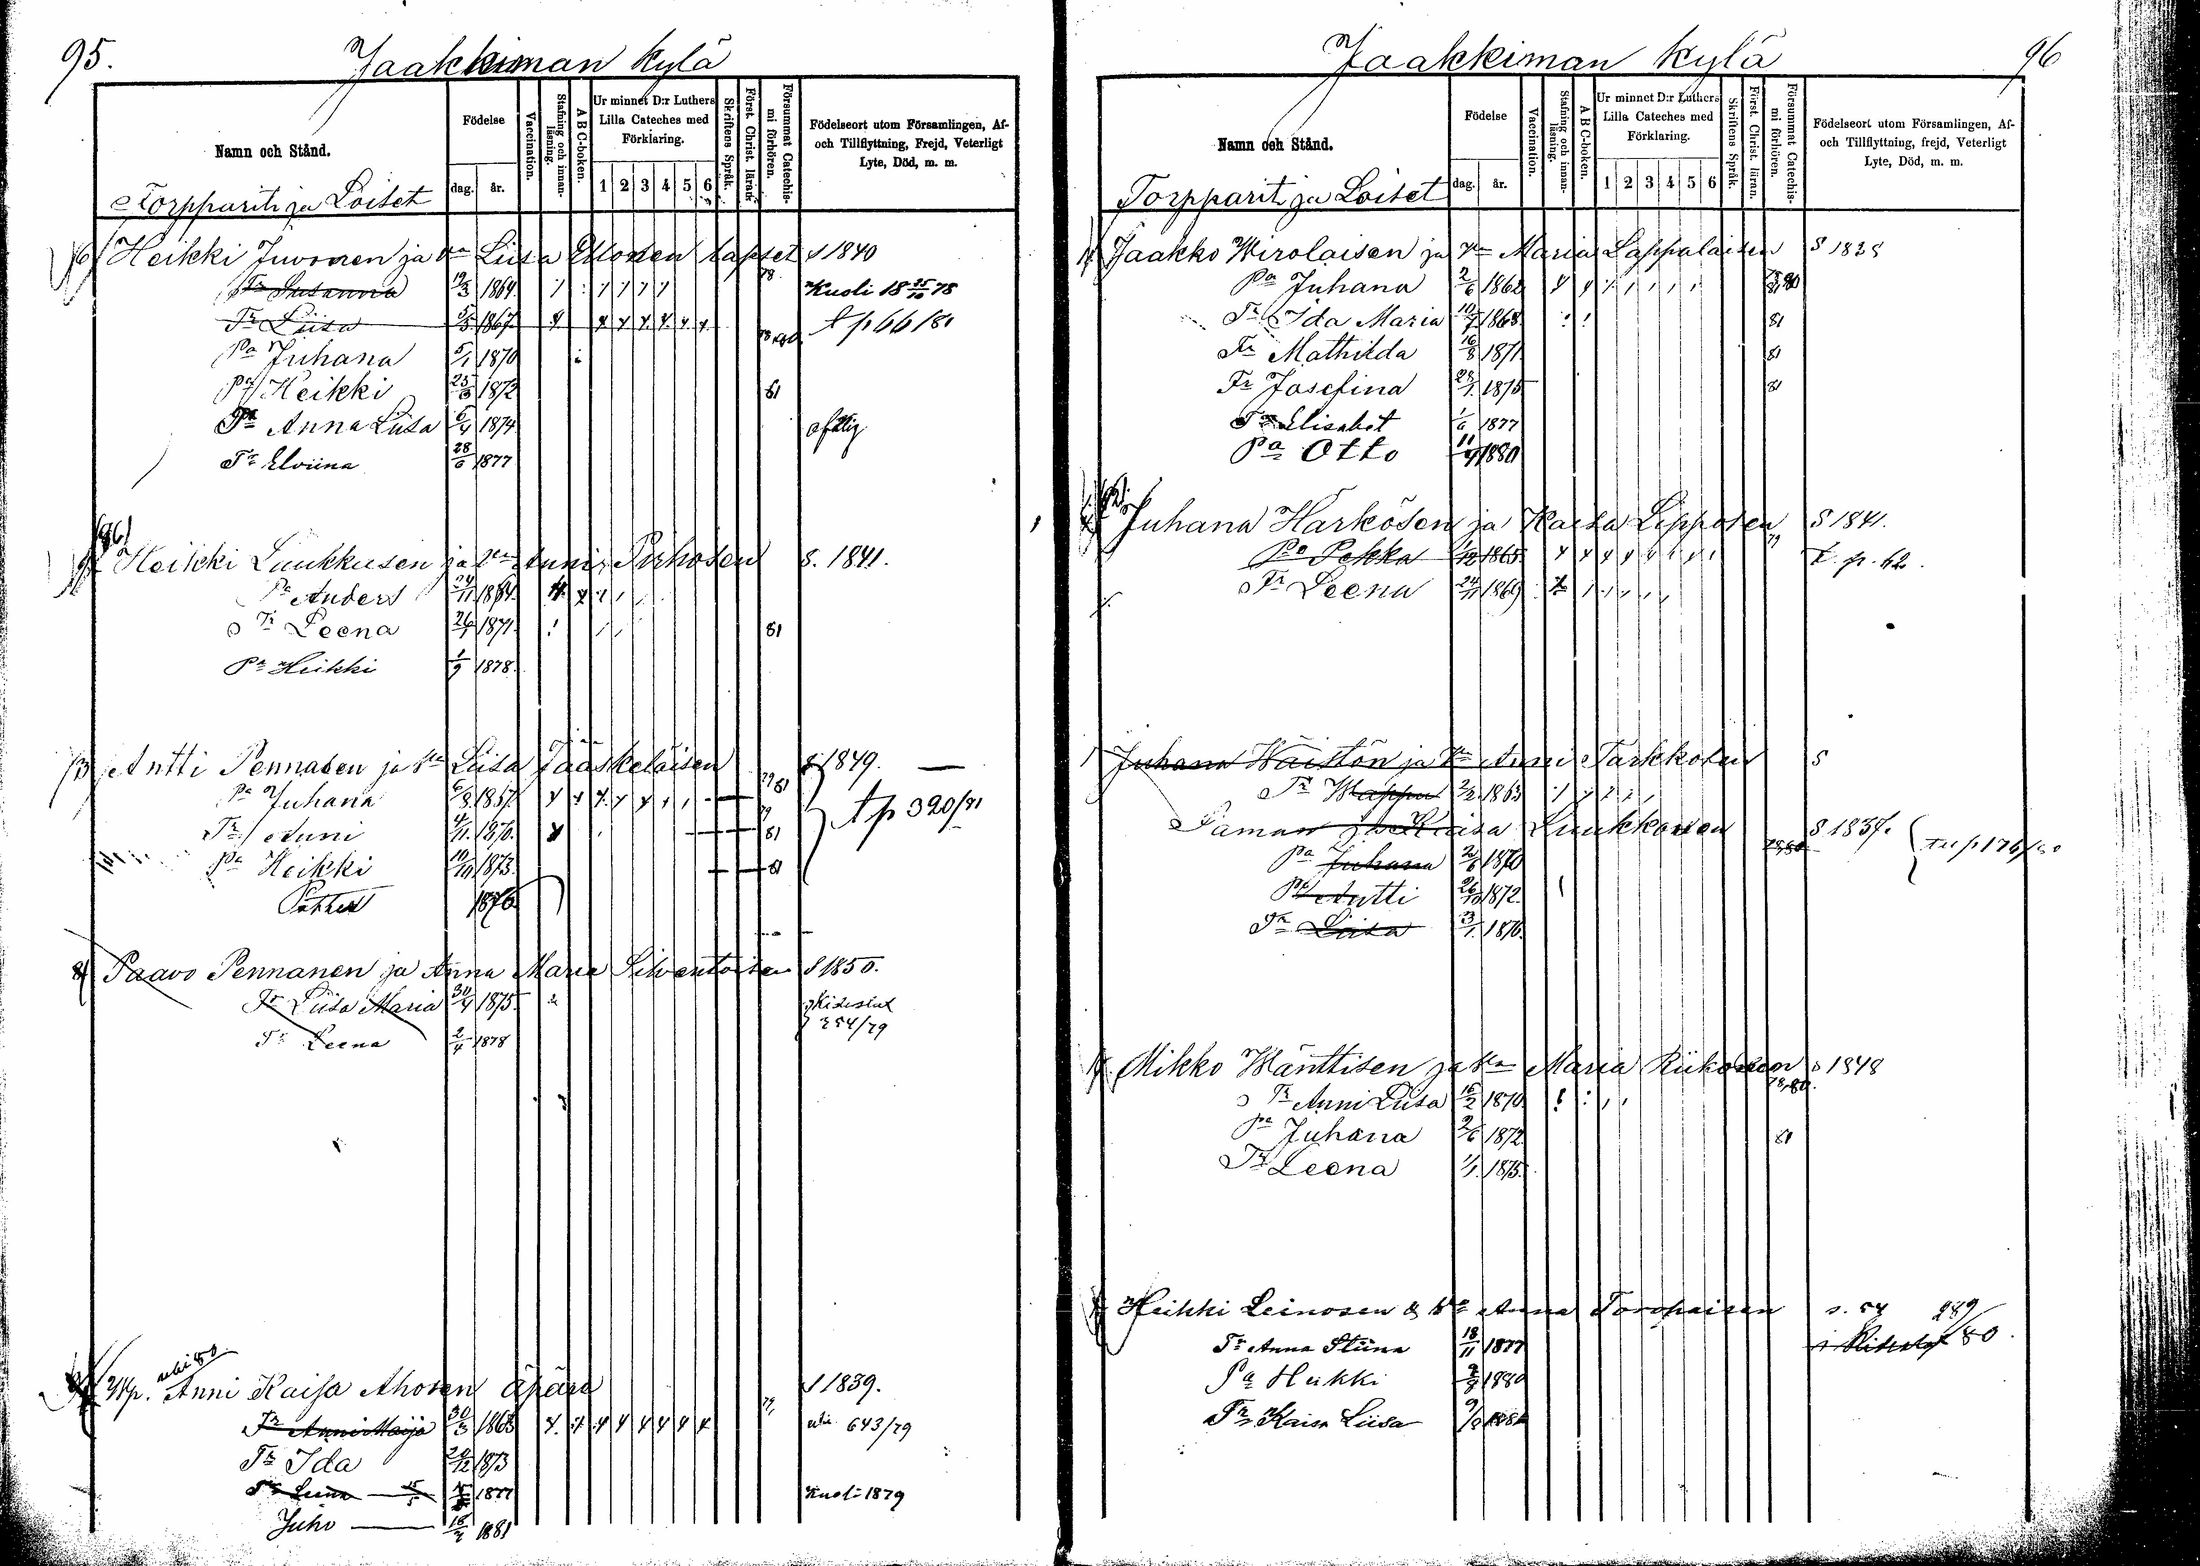 95.
Jaakkiman kylä
Namn och Stånd.
Födelse
dag. år.
Vaccination.
Stafning och innan-läsning.
A B C-boken.
Ur minnet D:r Luthers Lilla Cateches med Förklaring.
1 2 3 4 5 6
Skriftens Språk.
Först. Christ. läran
Försummat Catechis-mi förhören.
Födelseort utom Församlingen, Af- och Tillflyttning, Frejd, Veterligt Lyte, Död, m. m.
Torpparit ja Loiset
Heikki Juvonen ja Liisa lapset S 1840
Tr Susanna 1864 78 Kuoli 18 25/10 78
Tr Liisa 1867 p 66/81
Pa Juhana 5/1 1870
Pa Heikki 25/3 1872 81
Tr Anna Liisa 6/4 1874
Tr Elviina 28/6 1877
Heikki Luukkusen ja Anni Pirhosen S. 1841.
Pa Anders 24/11 1864
Tr Leena 26/1 1871 81
Pa Heikki 1/9 1878.
Antti Pennasen ja Liisa Jääskeläisen S 1849. —
Pa Juhana 1867 79 81
Tr Anni 4/11 1870. 79 81 p 320/81
Pa Heikki 10/10 1873. 81
Petter 1876
Paavo Pennanen ja Anna Maria Silventoisen S 1850.
Tr Liisa Maria 30/4 1875
Tr Leena 2/4 1878 254/79
Anni Kaisa Ahosen äpärä S 1839.
Tr Anni Maija 30/3 1863 643/79
Tr Ida 20/12 1873
Tr Leena 1877 Kuoli 1879
Juho 18/4 1881
96
Jaakkiman kylä
Namn och Stånd.
Födelse
dag. år.
Vaccination.
Stafning och innan-läsning.
A B C-boken.
Ur minnet D:r Luthers Lilla Cateches med Förklaring.
1 2 3 4 5 6
Skriftens Språk.
Först. Christ. läran.
Försummat Catechis-mi förhören.
Födelseort utom Församlingen, Af- och Tillflyttning, frejd, Veterligt Lyte, Död, m. m.
Torpparit ja Loiset
Jaakko Wirolaisen ja Maria Lappalaisen S 1835
Pa Juhana 2/6 1862
Tr Ida Maria 1868 81
Tr Mathilda 16/8 1871 81
Tr Josefina 28/1 1875 81
Tr Elisabet 1/6 1877
Pa Otto 11/4 1880
Juhana Härkösen ja Kaisa Lipposen S 1841.
Pa Pekka 1/12 1865 p. 62.
Tr Leena 24/11 1869
Juhana Wäistön ja Anni Tarkkosen S
Tr Mappu 2/2 1863
Saman ja Kaisa Luukkosen S 1837.
Pa Juhana 2/6 1870 p 176/80
Pa Antti 26/10 1872.
Tr Liisa 3/1 1876
Mikko Mänttisen ja Maria Riikosen S 1848
Tr Anni Liisa 16/2 1870
Pa Juhana 2/6 1872 81
Tr Leena 1/1 1875.
Heikki Leinosen & Anna Toropaisen s. 54 289/80
Tr Anna Stiina 18/11 1877
Pa Heikki 1880
Tr Kaisa Liisa